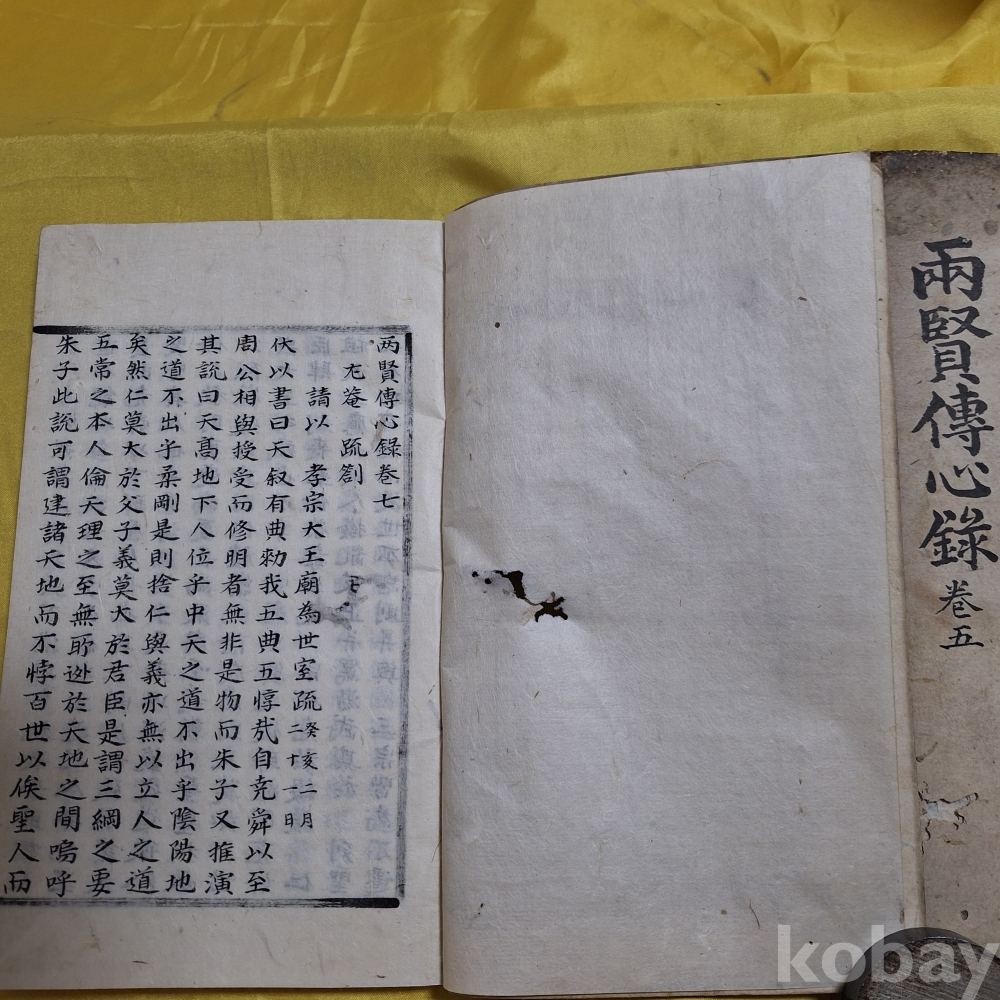 兩賢傳心錄
卷五
两賢傳心錄卷七
尤菴疏劄
請以孝宗大王廟為世室疏癸亥二月二十一日
伏以書曰天叙有典勑我五典五惇㢤自尭舜以至
周公相與授受而修明者無非是物而朱子又推演
其說曰天高地下人位乎中天之道不出乎陰陽地
之道不出乎柔剛是則捨仁與義亦無以立人之道
矣然仁莫大於父子義莫大於君臣是謂三綱之要
五常之本人倫天理之至無所逃於天地之間嗚呼
朱子此説可謂建諸天地而不悖百世以俟聖人而
kobay